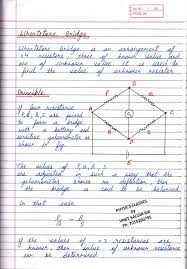 Wheatstone Bridge
Wheatstone Bridge is an arrangement of
04 resistors, three of known value and
one of unknown value. It is used to
find the value of unknown resistor.
Principle
If four resistance
P, Q, R, S are joined
to form a bridge
with a battery and
sensitive galvanometer
as shown in fig.
B
P
Q
A
G
C
R
S
D
E
The values of P, Q, R, S
are adjusted in such a way that the
galvanometer shows no deflection then
the bridge is said to be balanced.
In that case
P = R
Q S
If the values of
known then value of unknown resistance
can be determined.
PHYSICS CLASSES
BY